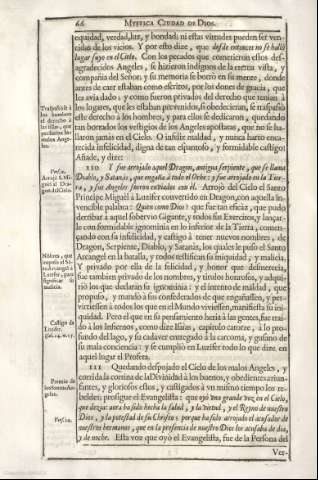 66 MYSTICA CIUDAD DE DIOS.
equidad, verdad, luz, y bondad: ni estas virtudes pueden ser ven-
cidas de los vicios. Y por esto dize, que desde entonces no se halló
lugar suyo en el Cielo. Con los pecados que cometieron estos des-
agradecidos Angeles, se hizieron indignos de la eterna vista, y
compañia del Señor, y su memoria se borrò en su mente, donde
antes de caer estaban como escritos, por los dones de gracia, que
les avia dado: y como fueron privados del derecho que tenian à
los lugares, que les estaban prevenidos, si obedecieran, se traspassò
este derecho à los hombres, y para ellos se dedicaron, quedando
tan borrados los vestigios de los Angeles apostatas, que no se ha-
llaron jamas en el Cielo. O infeliz maldad, y nunca harto enca-
recida infelicidad, digna de tan espantoso, y formidable castigo!
Añade, y dize:
Traspassòse à
los hombres
el derecho de
las sillas, que
perdieron los
malos Ange-
les.
110 Y fue arrojado aquel Dragon, antigua serpiente, que se llama
Diablo, y Satanàs, que engaña à todo el Orbe: y fue arrojado en la Tier-
ra, y sus Angeles fueron embiados con èl. Arrojò del Cielo el Santo
Principe Miguèl à Luzifer convertido en Dragon, con aquella in-
vencible palabra: Quien como Dios? que fue tan eficàz, que pudo
derribar à aquel sobervio Gigante, y todos sus Exercitos, y lançar-
le con formidable ignominia en lo inferior de la Tierra, comen-
çando con su infelicidad, y castigo à tener nuevos nombres, de
Dragon, Serpiente, Diablo, y Satanàs, los quales le puso el Santo
Arcangel en la batalla, y todos testifican su iniquidad, y malicia.
Y privado por ella de la felicidad, y honor que desmerecia,
fue tambien privado de los nombres, y titulos honrosos, y adqui-
riò los que declaran su ignominia: y el intento de maldad, que
propuso, y mandò à sus confederados de que engañassen, y per-
virtiessen à todos los que en el Mundo viviessen, manifiesta su ini-
quidad. Pero el que en su pensamiento heria à las gentes, fue trai-
do à los Infiernos, como dize Isaìas, capitulo catorze, à lo pro-
fundo del lago, y su cadaver entregado à la carcoma, y gusano de
su mala conciencia: y se cumpliò en Luzifer todo lo que dize en
aquel lugar el Profeta.
Vers. 9.
Arroja S. Mi-
guel al Dra-
gon del Cielo.
Nombres, que
impuso el Sto
Arcangel à
Luzifer, para
significar su
malicia.
Castigo de
Luzifer.
Isai. 14. v. 15.
111 Quedando despojado el Cielo de los malos Angeles, y
corrida la cortina de la Divinidad à los buenos, y obedientes triun-
fantes, y gloriosos estos, y castigados à un mismo tiempo los re-
beldes; prosigue el Evangelista: que oyò una grande voz en el Cielo,
que dezia: aora ha sido hecha la salud, y la virtud, y el Reyno de nuestro
Dios, y la potestad de su Christo: porque ha sido arrojado el acusador de
nuestros hermanos, que en la presencia de nuestro Dios los acusaba de dia,
y de noche. Esta voz que oyò el Evangelista, fue de la Persona del
Premio de
los buenos An-
geles.
Vers. 10.
Ver-